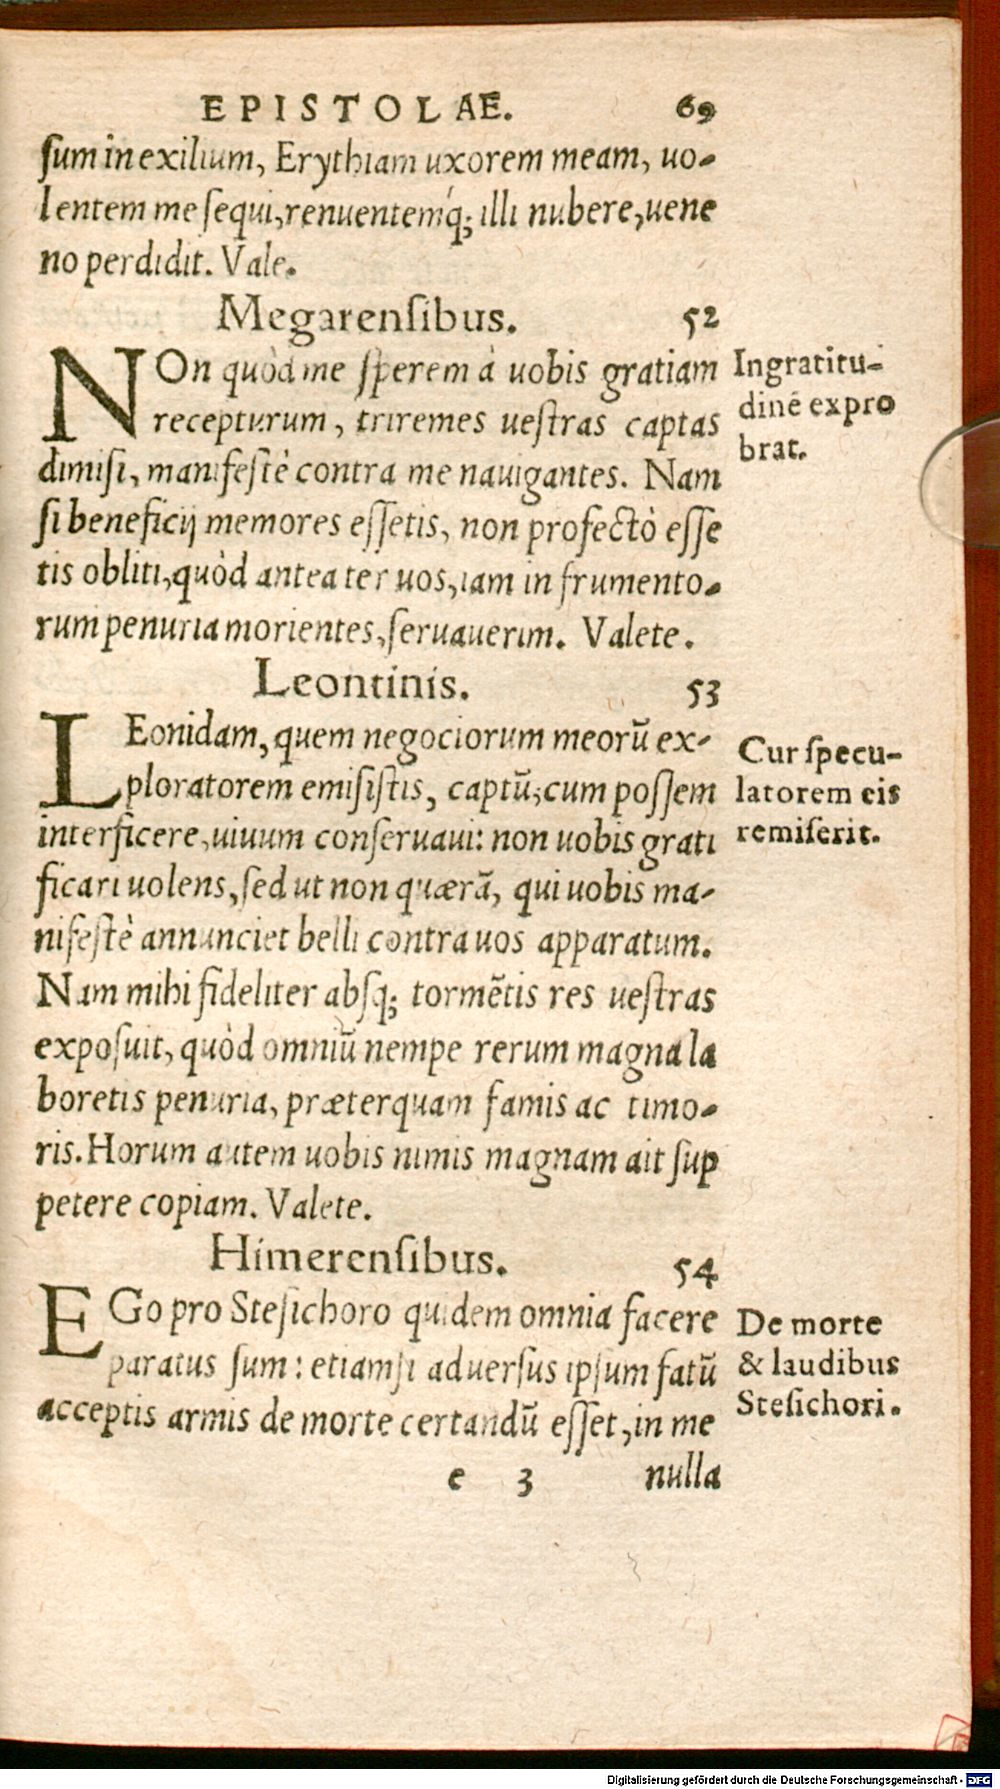 EPISTOLAE. 69
sum in exilium, Erythiam uxorem meam, uo-
lentem me sequi, renuentemq́; illi nubere, uene
no perdidit. Vale.
Megarensibus. 52
NOn quòd me sperem à uobis gratiam
recepturum, triremes uestras captas
dimisi, manifestè contra me nauigantes. Nam
si beneficij memores essetis, non profectò esse
tis obliti, quòd antea ter uos, iam in frumento-
rum penuria morientes, seruauerim. Valete.
Ingratitu-
dinē expro
brat.
Leontinis. 53
LEonidam, quem negociorum meorū ex-
ploratorem emisistis, captū; cum possem
interficere, uiuum conseruaui: non uobis grati
ficari uolens, sed ut non quærā, qui uobis ma-
nifestè annunciet belli contra uos apparatum.
Nam mihi fideliter absq; tormētis res uestras
exposuit, quòd omniū nempe rerum magna la
boretis penuria, præterquam famis ac timo-
ris. Horum autem uobis nimis magnam ait sup
petere copiam. Valete.
Cur specu-
latorem eis
remiserit.
Himerensibus. 54
EGo pro Stesichoro quidem omnia facere
paratus sum: etiamsi aduersus ipsum fatū
acceptis armis de morte certandū esset, in me
De morte
& laudibus
Stesichori.
e 3 nulla
Digitalisierung gefördert durch die Deutsche Forschungsgemeinschaft - DFG